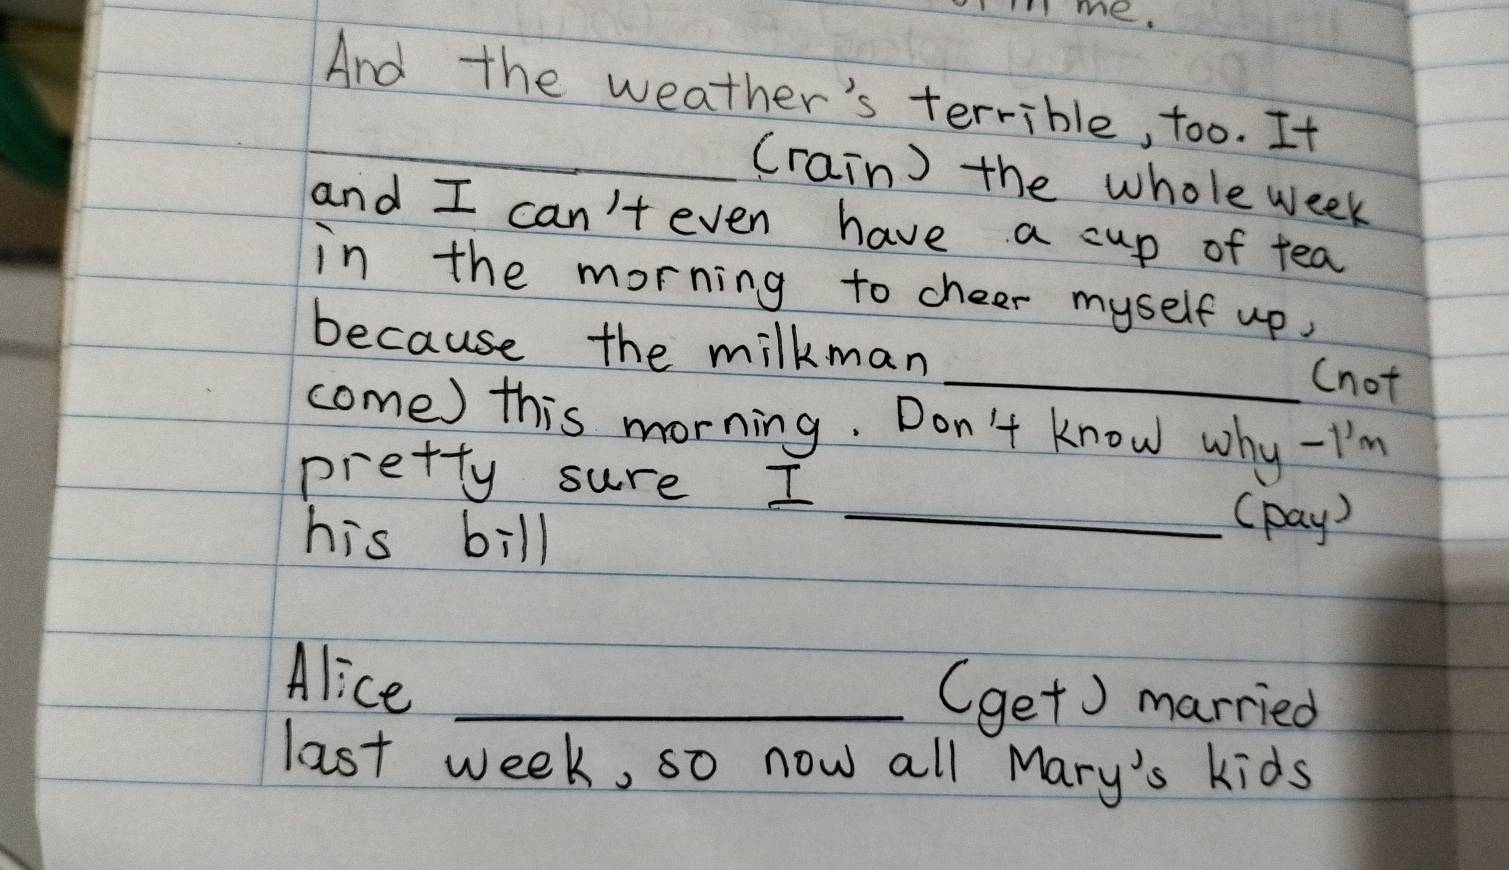 me.
And the weather's terrible, too. It
____________ (rain) the whole week
and I can't even have a cup of tea
in the morning to cheer myself up,
because the milkman __________ (not
come) this morning. Don't know why - I'm
pretty sure I __________ (pay)
his bill
Alice ____________ (get) married
last week, so now all Mary's kids